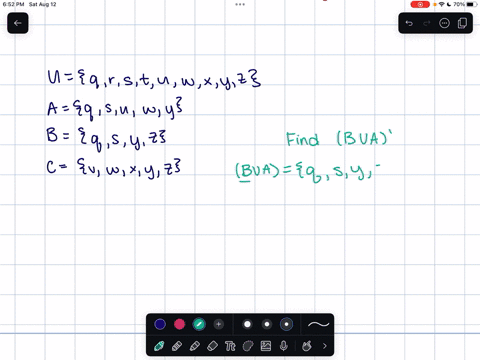 6:52 PM Sat Aug 12
70%
U = {q, r, s, t, u, w, x, y, z}
A = {q, s, u, w, y}
B = {q, s, y, z}
C = {v, w, x, y, z}
Find (B∪A)'
(B∪A) = {q, s, y,